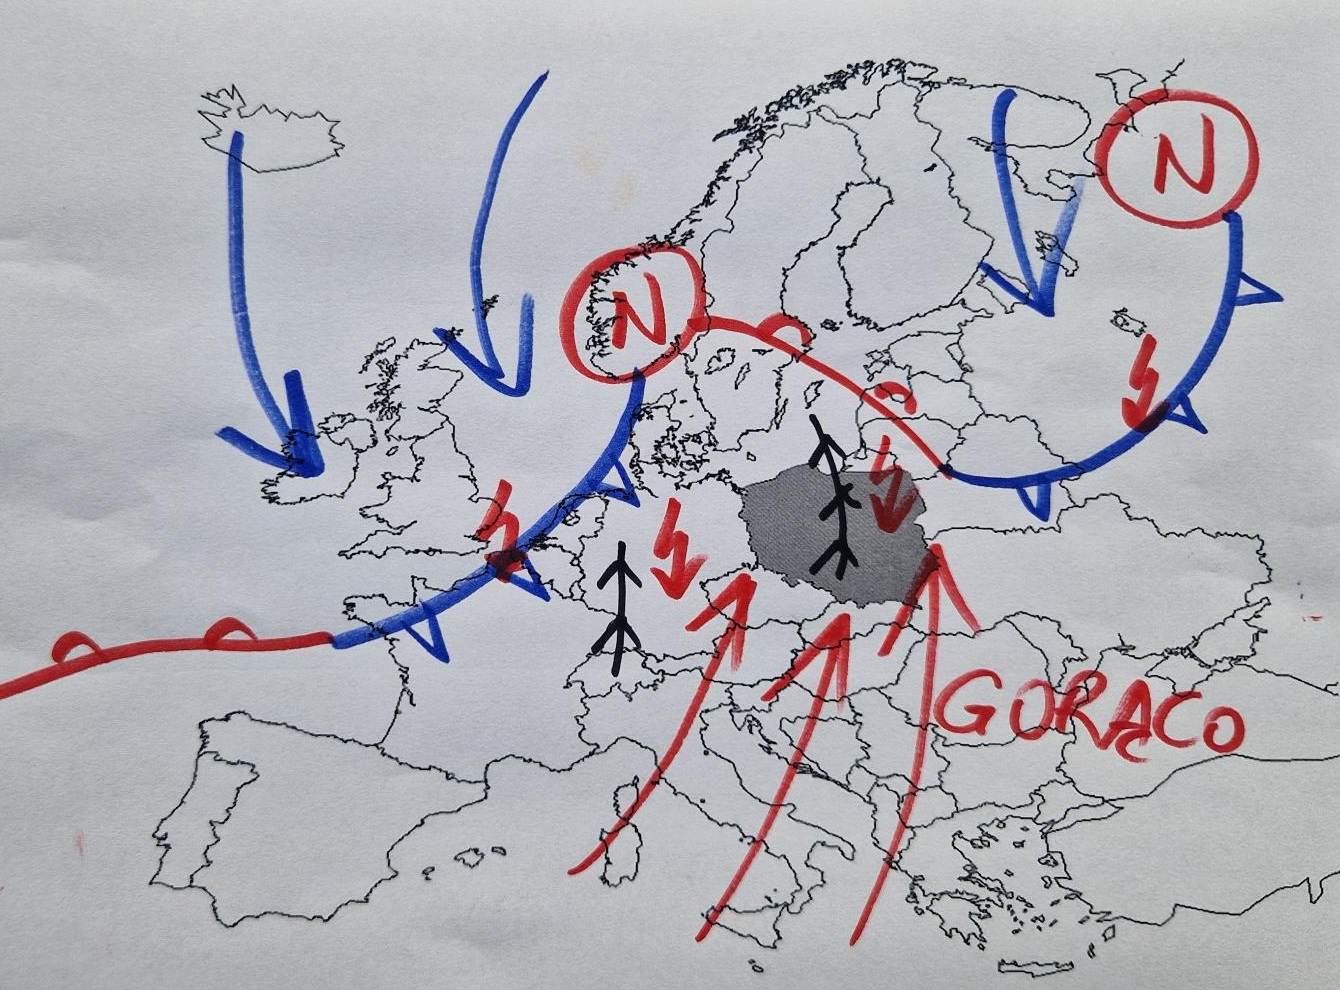 N
N
GORĄCO